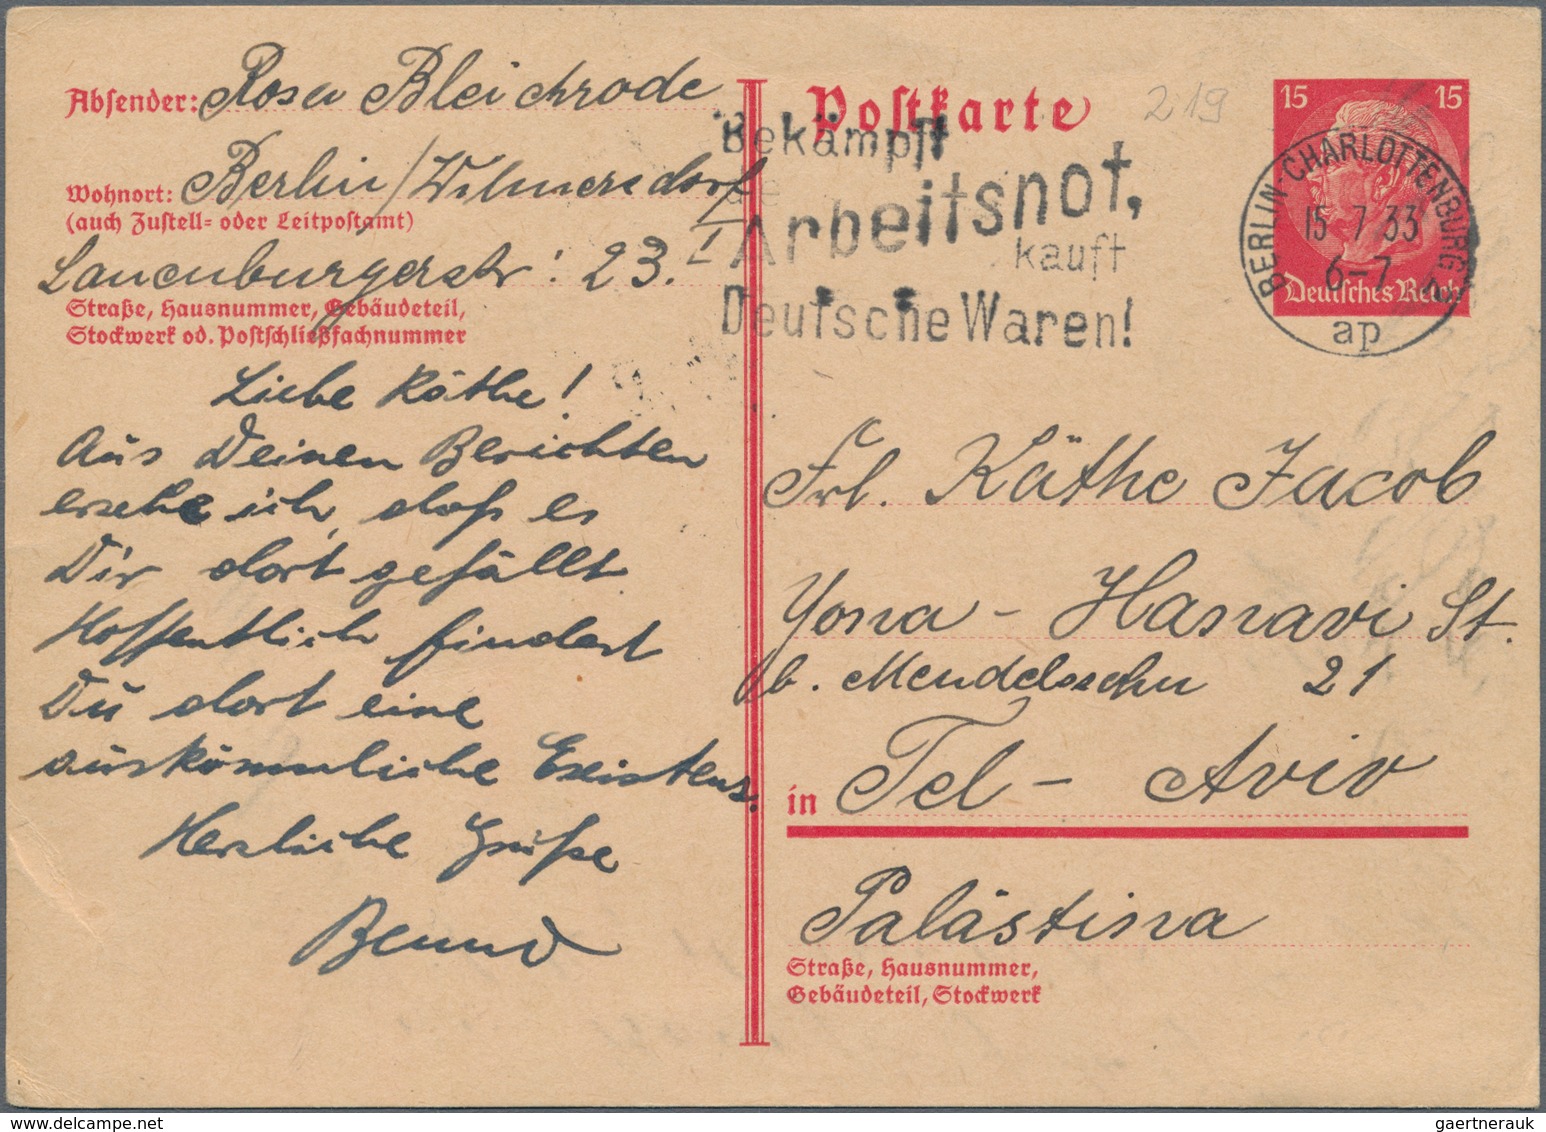 Absender: Rosa Bleichrode
Wohnort: Berlin/Wilmersdorf
(auch Zustell- oder Leitpostamt)
Lauenburgerstr. 23. I
Straße, Hausnummer, Gebäudeteil,
Stockwerk od. Postschließfachnummer
Liebe Käthe!
Aus Deinen Berichten
ersehe ich, daß es
Dir dort gefällt
Hoffentlich findest
Du dort eine
auskömmliche Existenz.
Herzliche Grüße
Postkarte
219
Bekämpft
die
Arbeitsnot,
kauft
Deutsche Waren!
15 15
BERLIN-CHARLOTTENBURG 2
15 7 33
6-7
ap
Deutsches Reich
Frl. Käthe Jacob
Yona-Hanavi St.
b. Mendelssohn 21
in Tel-Aviv
Palästina
Straße, Hausnummer,
Gebäudeteil, Stockwerk
gaertnerauk